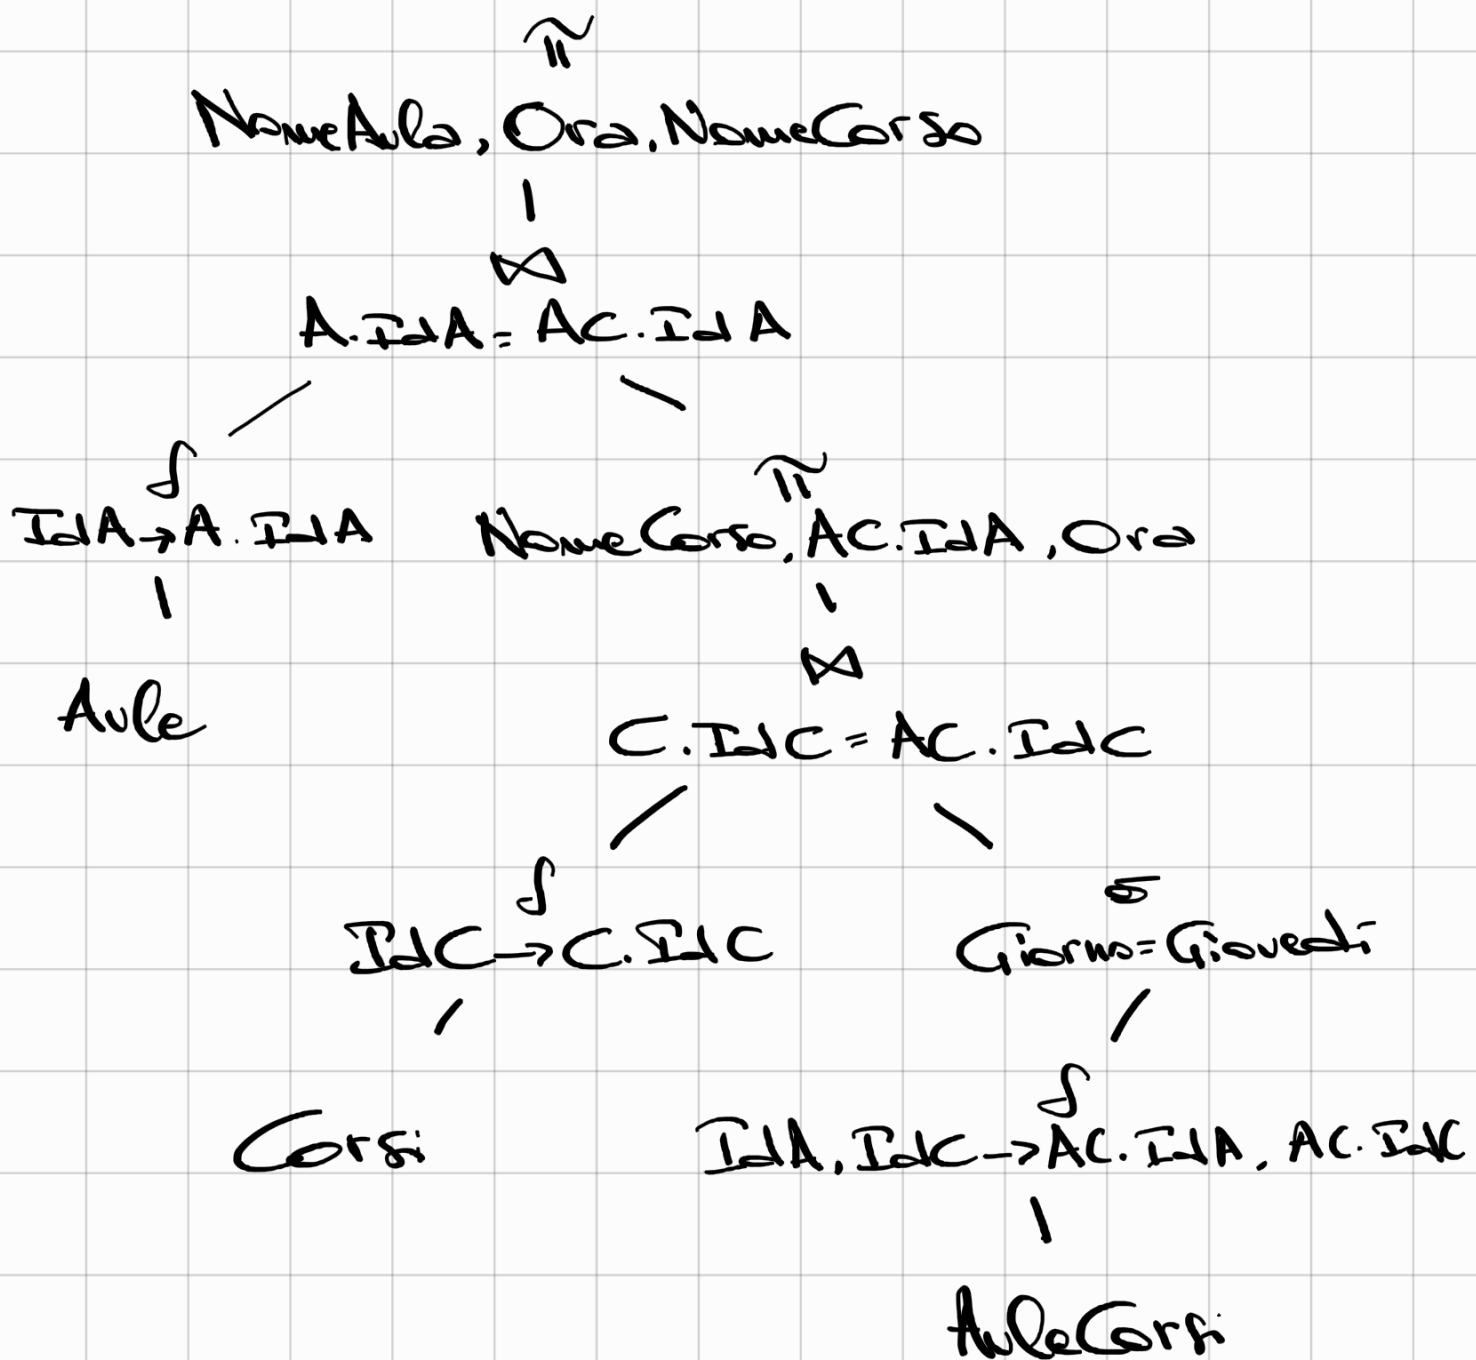 π
NomeAula, Ora, NomeCorso
⋈
A.IdA = AC.IdA
δ
IdA → A.IdA
π
NomeCorso, AC.IdA, Ora
Aule
⋈
C.IdC = AC.IdC
δ
IdC → C.IdC
σ
Giorno = Giovedì
Corsi
δ
IdA, IdC → AC.IdA, AC.IdC
AuleCorsi